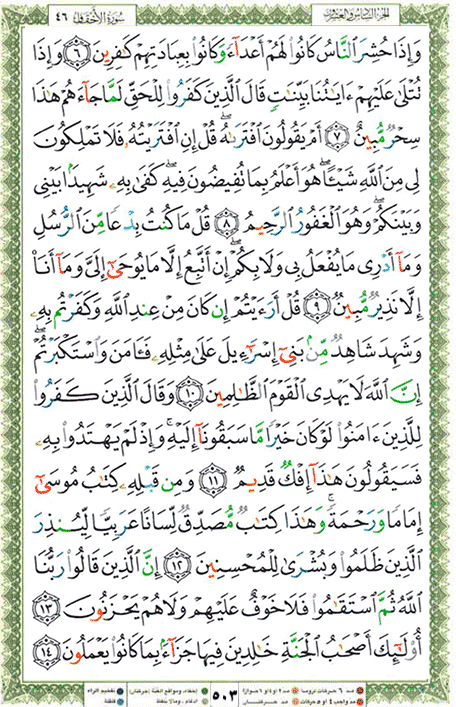 الجزء السادس والعشرون سورة الأحقاف ٤٦
وَإِذَا حُشِرَ ٱلنَّاسُ كَانُوا۟ لَهُمْ أَعْدَآءً وَكَانُوا۟ بِعِبَادَتِهِمْ كَـٰفِرِينَ ٦ وَإِذَا
تُتْلَىٰ عَلَيْهِمْ ءَايَـٰتُنَا بَيِّنَـٰتٍ قَالَ ٱلَّذِينَ كَفَرُوا۟ لِلْحَقِّ لَمَّا جَآءَهُمْ هَـٰذَا
سِحْرٌ مُّبِينٌ ٧ أَمْ يَقُولُونَ ٱفْتَرَىٰهُ ۖ قُلْ إِنِ ٱفْتَرَيْتُهُۥ فَلَا تَمْلِكُونَ
لِى مِنَ ٱللَّهِ شَيْـًٔا ۖ هُوَ أَعْلَمُ بِمَا تُفِيضُونَ فِيهِ ۖ كَفَىٰ بِهِۦ شَهِيدًۢا بَيْنِى
وَبَيْنَكُمْ ۖ وَهُوَ ٱلْغَفُورُ ٱلرَّحِيمُ ٨ قُلْ مَا كُنتُ بِدْعًا مِّنَ ٱلرُّسُلِ
وَمَآ أَدْرِى مَا يُفْعَلُ بِى وَلَا بِكُمْ ۖ إِنْ أَتَّبِعُ إِلَّا مَا يُوحَىٰٓ إِلَىَّ وَمَآ أَنَا۠
إِلَّا نَذِيرٌ مُّبِينٌ ٩ قُلْ أَرَءَيْتُمْ إِن كَانَ مِنْ عِندِ ٱللَّهِ وَكَفَرْتُم بِهِۦ
وَشَهِدَ شَاهِدٌ مِّنۢ بَنِىٓ إِسْرَٰٓءِيلَ عَلَىٰ مِثْلِهِۦ فَـَٔامَنَ وَٱسْتَكْبَرْتُمْ ۖ
إِنَّ ٱللَّهَ لَا يَهْدِى ٱلْقَوْمَ ٱلظَّـٰلِمِينَ ١٠ وَقَالَ ٱلَّذِينَ كَفَرُوا۟
لِلَّذِينَ ءَامَنُوا۟ لَوْ كَانَ خَيْرًا مَّا سَبَقُونَآ إِلَيْهِ ۚ وَإِذْ لَمْ يَهْتَدُوا۟ بِهِۦ
فَسَيَقُولُونَ هَـٰذَآ إِفْكٌ قَدِيمٌ ١١ وَمِن قَبْلِهِۦ كِتَـٰبُ مُوسَىٰٓ
إِمَامًا وَرَحْمَةً ۚ وَهَـٰذَا كِتَـٰبٌ مُّصَدِّقٌ لِّسَانًا عَرَبِيًّا لِّيُنذِرَ
ٱلَّذِينَ ظَلَمُوا۟ وَبُشْرَىٰ لِلْمُحْسِنِينَ ١٢ إِنَّ ٱلَّذِينَ قَالُوا۟ رَبُّنَا
ٱللَّهُ ثُمَّ ٱسْتَقَـٰمُوا۟ فَلَا خَوْفٌ عَلَيْهِمْ وَلَا هُمْ يَحْزَنُونَ ١٣
أُو۟لَـٰٓئِكَ أَصْحَـٰبُ ٱلْجَنَّةِ خَـٰلِدِينَ فِيهَا جَزَآءًۢ بِمَا كَانُوا۟ يَعْمَلُونَ ١٤
٥٠٣